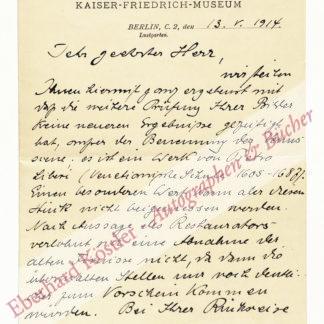 KAISER-FRIEDRICH-MUSEUM
BERLIN, C. 2, den 13. V. 1914
Lustgarten.
Sehr geehrter Herr,
wir teilen
Ihnen hiermit ganz ergebenst mit
daß die weitere Prüfung Ihrer Bilder
keine neueren Ergebnisse gezeitigt
hat, außer der Benennung der
scene: es ist ein Werk von Pietro
Liberi (Venetianische Schule 1605-1687).
Einen besonderen Wert kann aber diesem
Stück nicht beigemessen werden.
Nach Aussage des Restaurators
verlohnt sich eine Abnahme des
alten Firnisse nicht, da dann die
übermalten Stellen nur noch deutli-
cher zum Vorschein kommen
würden. Bei Ihrer Rückreise
Eberhard Köstler - Autographen & Bücher